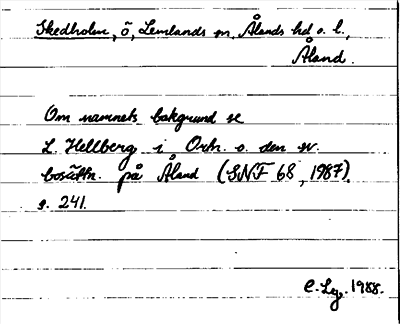 Skedholm, ö, Lemlands sn, Ålands hd o. l.,
Åland.
Om namnets bakgrund se
L. Hellberg i Ortn. o. den sv.
bosättn. på Åland (SNF 68, 1987),
s. 241.
C. Lg. 1988.